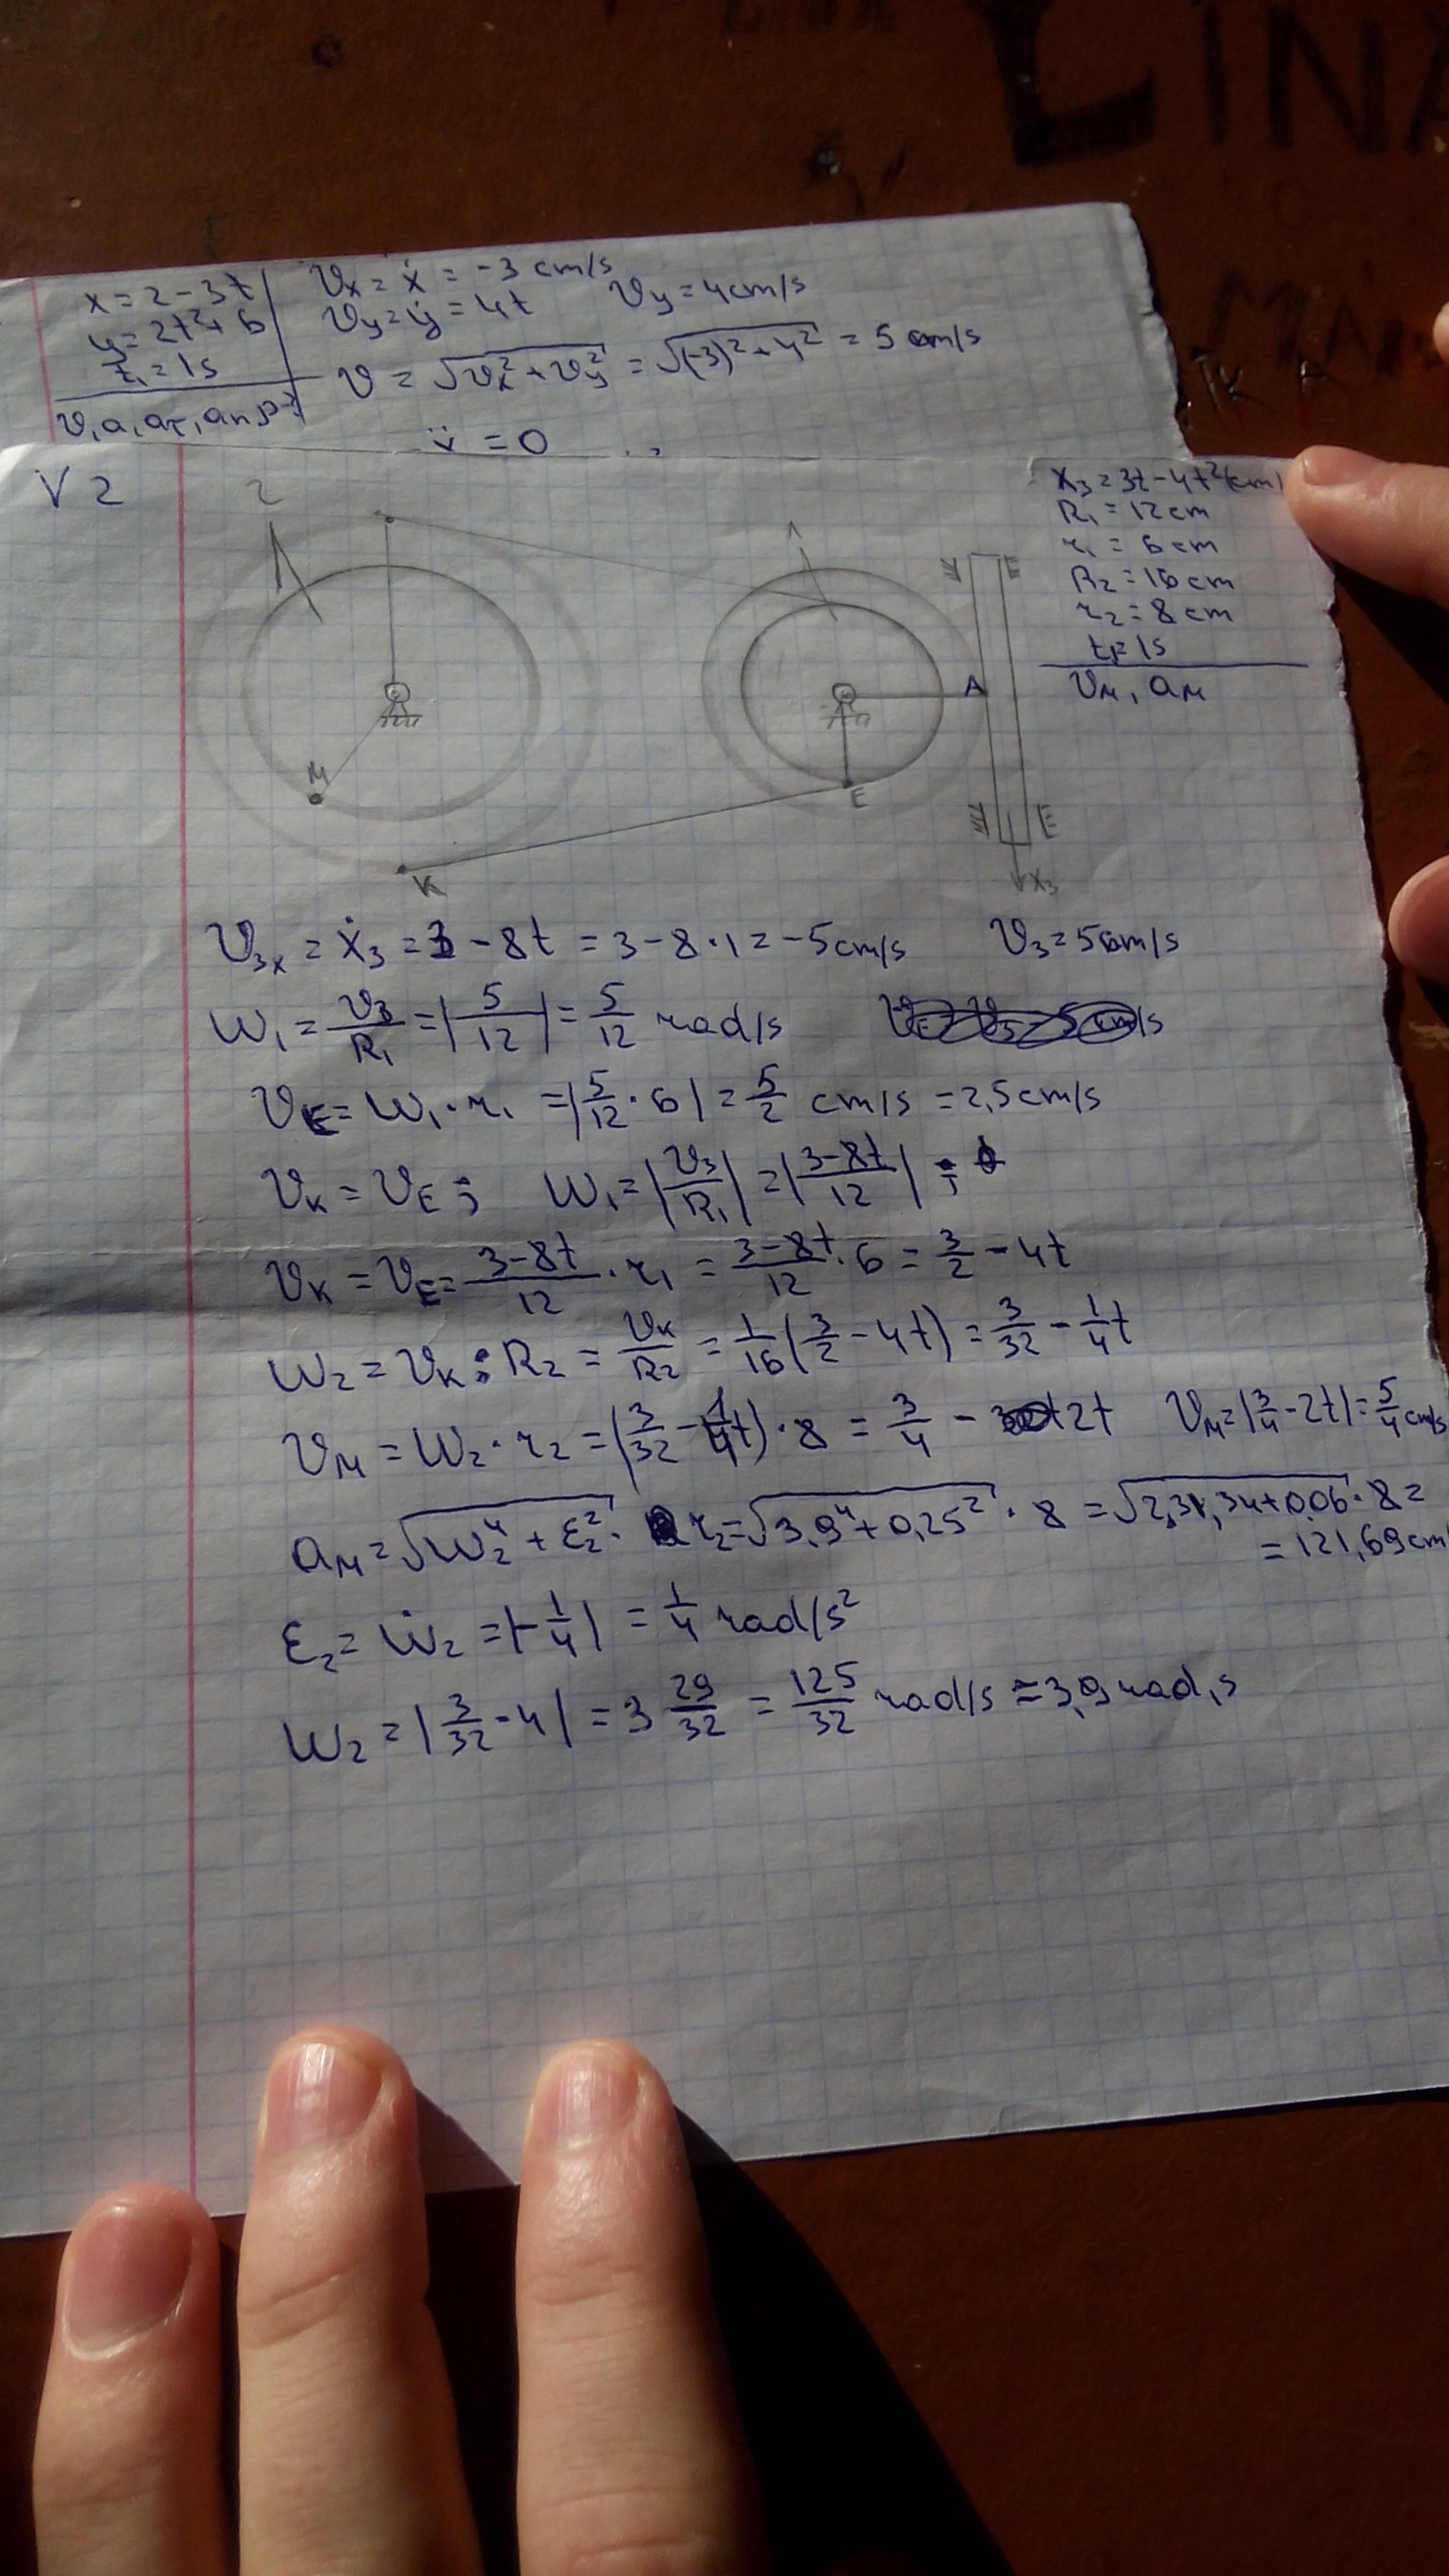 LINA
x = 2 - 3t
Vx = ẋ = -3 cm/s
y = 2t² + 6
Vy = ẏ = 4t
Vy = 4 cm/s
t₁ = 1s
V = √(Vx² + Vy²) = √((-3)² + 4²) = 5 cm/s
v, a, aτ, an, ρ-?
= 0
V 2
2
1
x₃ = 3t - 4t² (cm)
R₁ = 12 cm
r₁ = 6 cm
R₂ = 16 cm
r₂ = 8 cm
t₁ = 1s
V_M, a_M
A
M
E
K
x₃
V₃ₓ = ẋ₃ = 3 - 8t = 3 - 8·1 = -5 cm/s   V₃ = 5 cm/s
W₁ = V₃/R₁ = |5/12| = 5/12 rad/s
V_E = W₁·r₁ = |5/12·6| = 5/2 cm/s = 2,5 cm/s
V_K = V_E; W₁ = |V₃/R₁| = |(3-8t)/12| ;
V_K = V_E = (3-8t)/12 · r₁ = (3-8t)/12 · 6 = 3/2 - 4t
W₂ = V_K : R₂ = V_K/R₂ = 1/16(3/2 - 4t) = 3/32 - 1/4t
V_M = W₂·r₂ = (3/32 - 1/4t)·8 = 3/4 - 2t   V_M = |3/4 - 2t| = 5/4 cm/s
a_M = √(W₂⁴ + ε₂²) · r₂ = √(3,9⁴ + 0,25²) · 8 = √(231,34 + 0,06) · 8 =
= 121,69 cm
ε₂ = Ẇ₂ = |-1/4| = 1/4 rad/s²
W₂ = |3/32 - 4| = 3 29/32 = 125/32 rad/s ≈ 3,9 rad/s